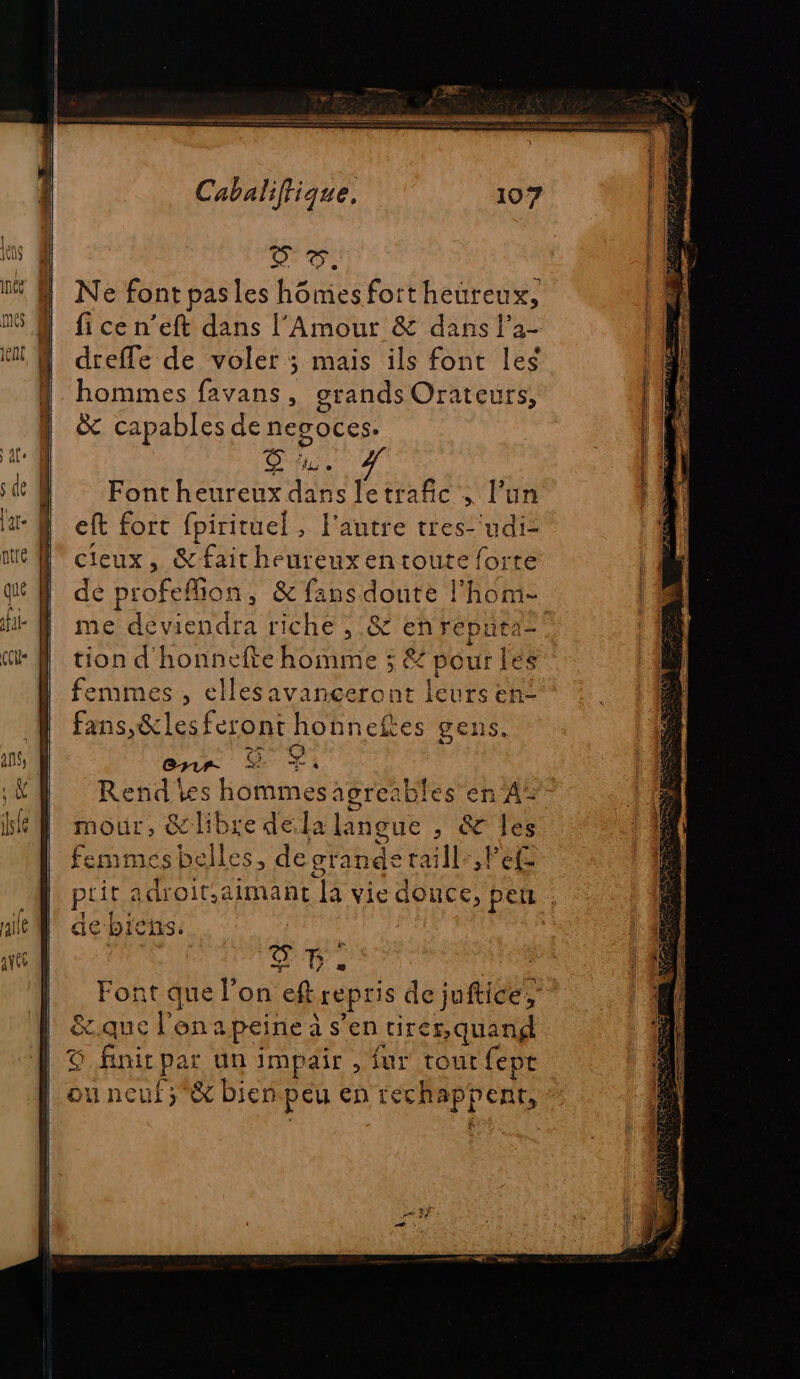 Cabaliſtique. 107
☿ ♉.
Ne font pas les hõmes fort heureux,
ſi ce n'eſt dans l'Amour & dans l'a-
dreſſe de voler ; mais ils font les
hommes ſavans, grands Orateurs,
& capables de negoces.
Font heureux dans le trafic , l'un
eſt fort ſpirituel , l'autre tres-udi-
cieux , & fait heureux en toute ſorte
de profeſſion, & ſans doute l'hom-
me deviendra riche , & en reputa-
tion d'honneſte homme ; & pour les
femmes , elles avanceront leurs en-
fans,& les feront honneſtes gens.
Rend les hommes agreables en A-
mour, & libre de la langue , & les
femmes belles, de grande taill-,l'eſ-
prit adroit,aimant la vie douce, peu
de biens.
Font que l'on eſt repris de juſtice,
& que l'on a peine à s'en tirer,quand
☿ finit par un impair , ſur tout ſept
ou neuf; & bien peu en rechappent,